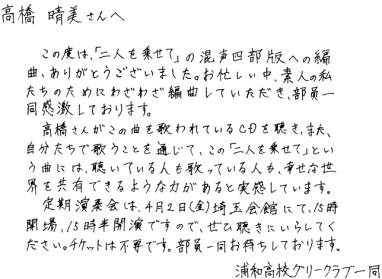 高橋 晴美さんへ
この度は、「二人を乗せて」の混声四部版への編
曲、ありがとうございました。お忙しい中、素人の私
たちのためにわざわざ編曲していただき、部員一
同感激しております。
高橋さんがこの曲を歌われているCDを聴き、また、
自分たちで歌うことを通じて、この「二人を乗せて」とい
う曲には、聴いている人も歌っている人も、幸せな世
界を共有できるような力があると実感しています。
定期演奏会は、4月2日(金)埼玉会館にて、15時
開場、15時半開演ですので、ぜひ聴きにいらしてく
ださい。チケットは不要です。部員一同お待ちしております。
浦和高校グリークラブ一同